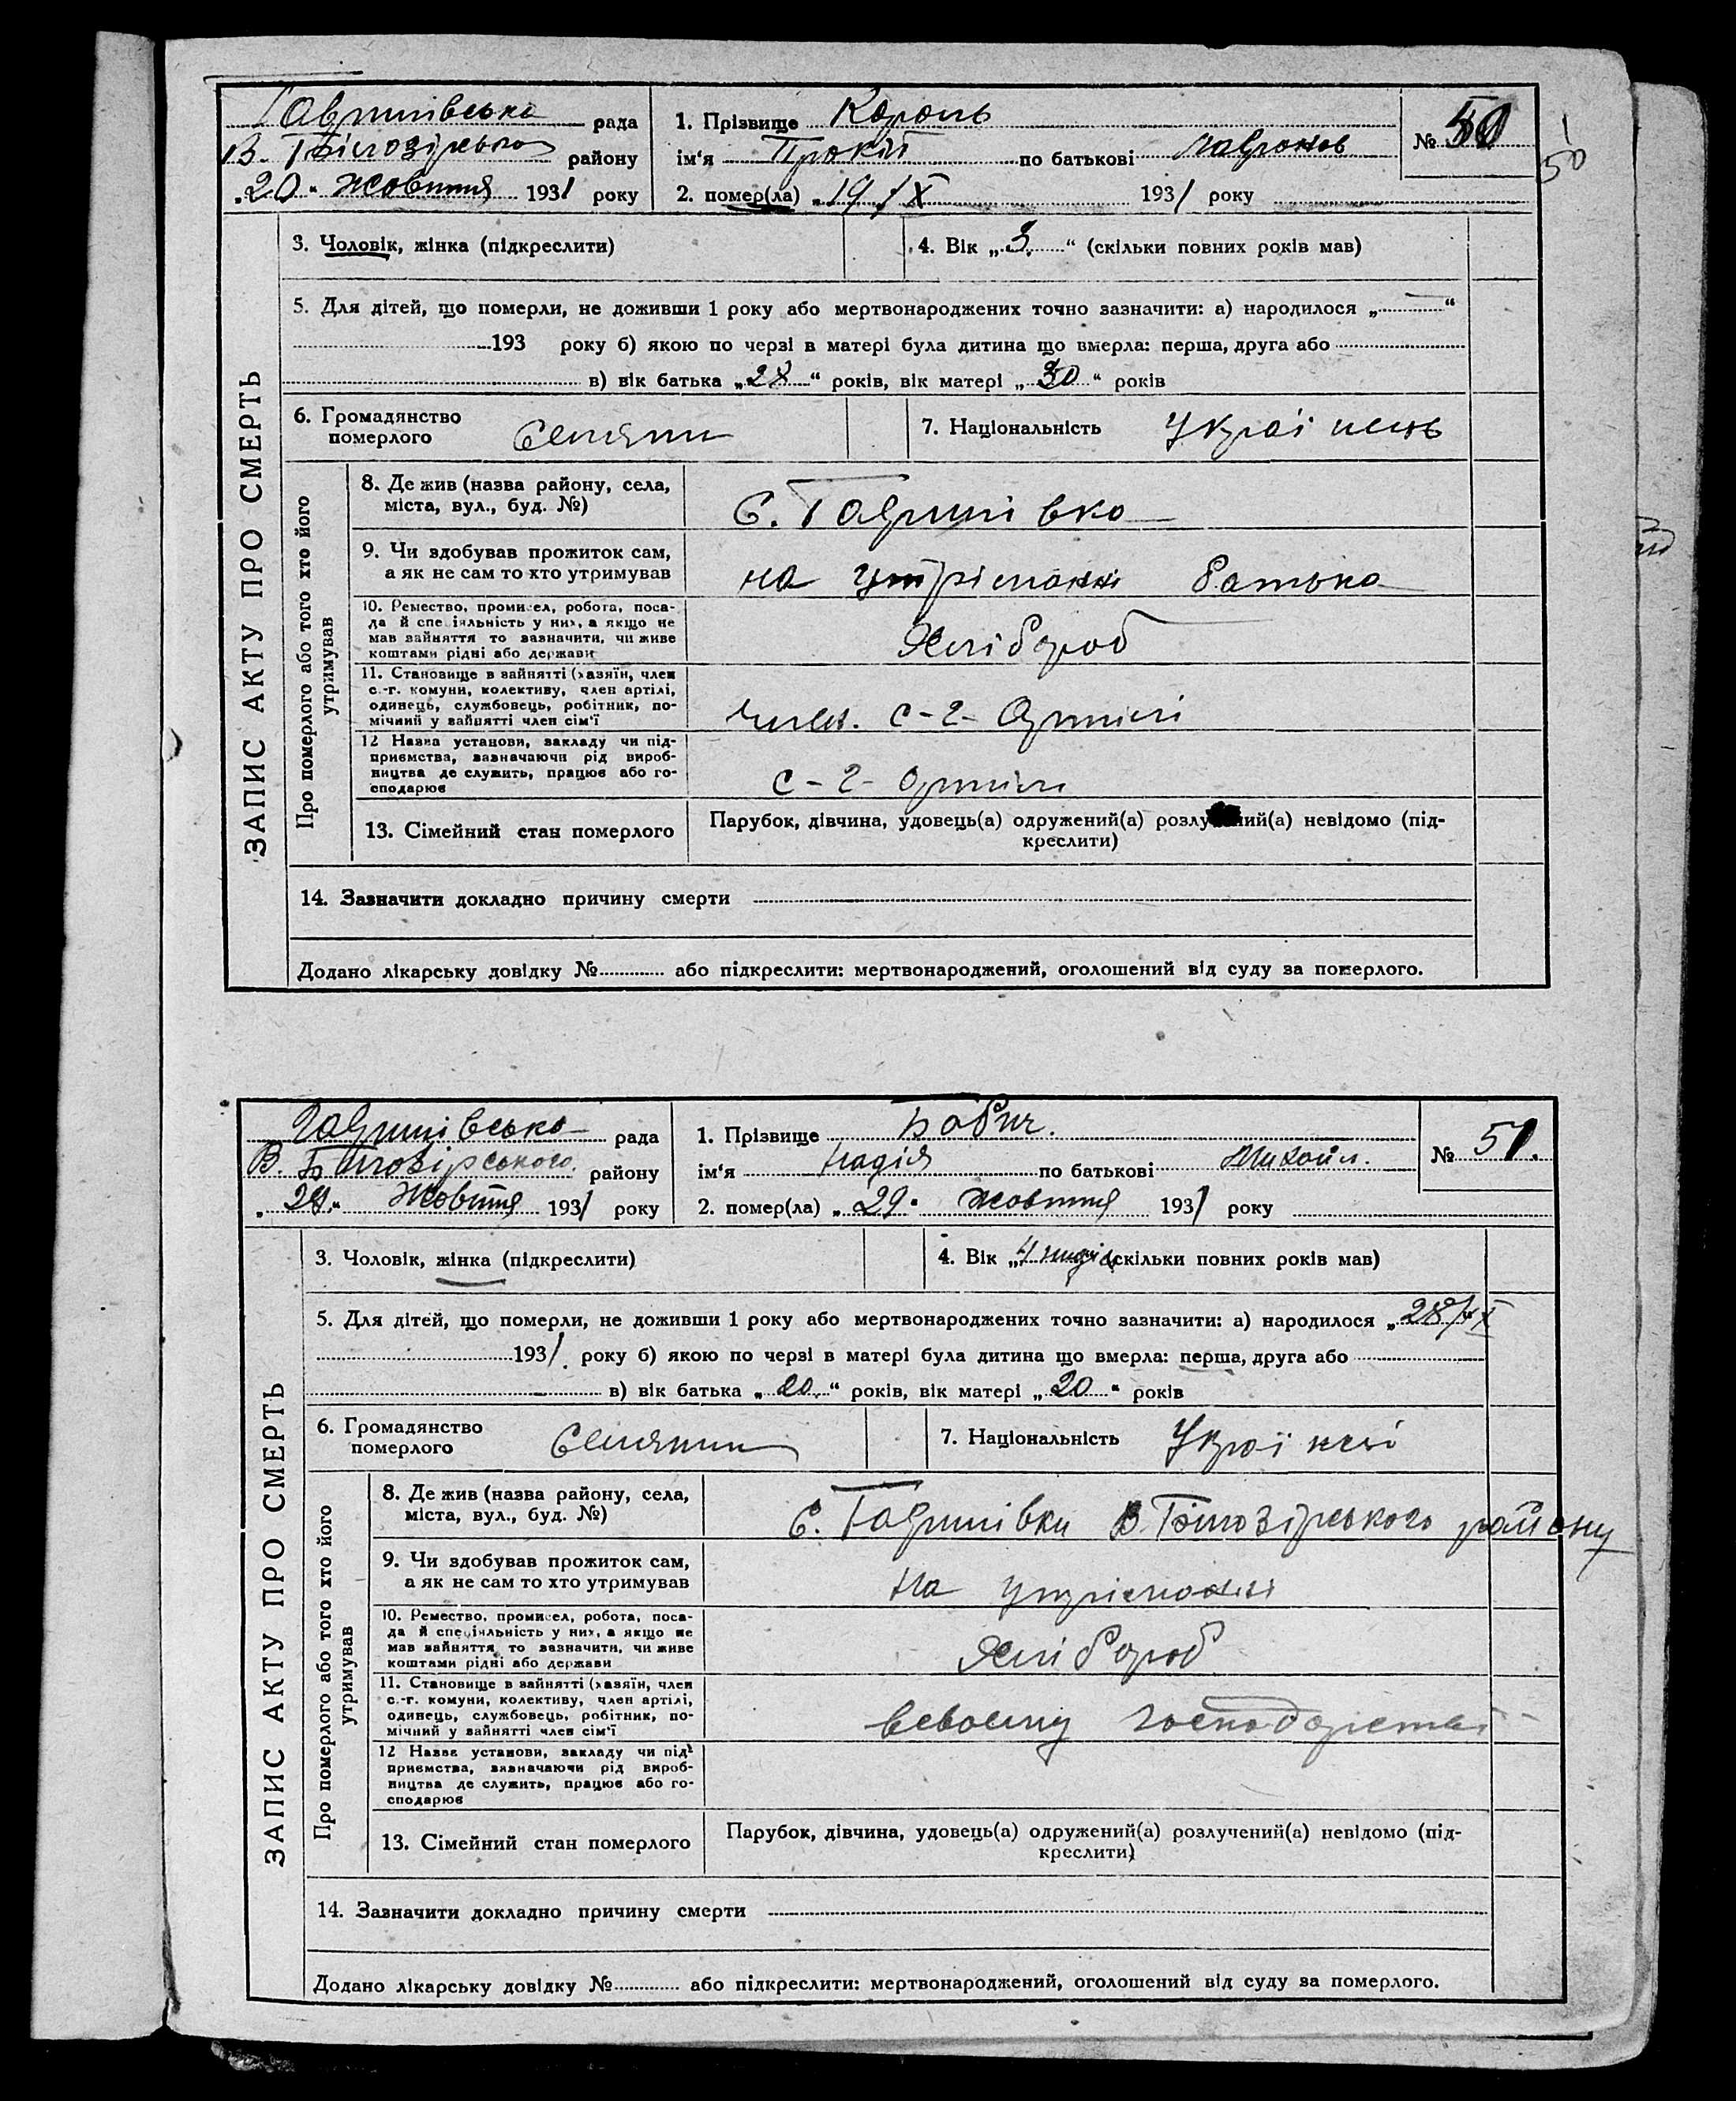 Гавришівська рада
В. Білозірського району
„20“ жовтня 1931 року
1. Прізвище Король
ім'я Прокіп по батькові
2. помер(ла) „19/X 1931 року
№ 50
50
3. Чоловік, жінка (підкреслити)
4. Вік „3“ (скільки повних років мав)
5. Для дітей, що померли, не доживши 1 року або мертвонароджених точно зазначити: а) народилося „ “
193 року б) якою по черзі в матері була дитина що вмерла: перша, друга або
в) вік батька „28“ років, вік матері „30“ років
6. Громадянство
померлого
Селянин
7. Національність Українець
ЗАПИС АКТУ ПРО СМЕРТЬ
Про померлого або того хто його
утримував
8. Де жив (назва району, села,
міста, вул., буд. №)
С. Гавришівка
9. Чи здобував прожиток сам,
а як не сам то хто утримував
на утріманні батька
10. Ремество, промисел, робота, поса-
да й спеціяльність у них, а якщо не
мав зайняття то зазначити, чи живе
коштами рідні або держави
Хлібороб
11. Становище в зайнятті (хазяїн, член
с.-г. комуни, колективу, член артілі,
одинець, службовець, робітник, по-
мічний у зайнятті член сім'ї
член. с-г- Артілі
12 Назва установи, закладу чи під-
приємства, зазначаючи рід вироб-
ництва де служить, працює або го-
сподарює
с-г- артілі
13. Сімейний стан померлого
Парубок, дівчина, удовець(а) одружений(а) розлучений(а) невідомо (під-
креслити)
14. Зазначити докладно причину смерти
Додано лікарську довідку № або підкреслити: мертвонароджений, оголошений від суду за померлого.
Гавришівська рада
В. Білозірського району
„29“ Жовтня 1931 року
1. Прізвище Бабич.
ім'я Надія по батькові Михайл.
2. помер(ла) „29“ жовтня 1931 року
№ 51.
3. Чоловік, жінка (підкреслити)
4. Вік „4 (скільки повних років мав)
5. Для дітей, що померли, не доживши 1 року або мертвонароджених точно зазначити: а) народилося „28/IX
1931. року б) якою по черзі в матері була дитина що вмерла: перша, друга або
в) вік батька „20.“ років, вік матері „20“ років
6. Громадянство
померлого
Селянин
7. Національність
ЗАПИС АКТУ ПРО СМЕРТЬ
Про померлого або того хто його
утримував
8. Де жив (назва району, села,
міста, вул., буд. №)
С. Гавришівки В. Білозірського району
9. Чи здобував прожиток сам,
а як не сам то хто утримував
На утріманні
10. Ремество, промисел, робота, поса-
да й спеціяльність у них, а якщо не
мав зайняття, то зазначити, чи живе
коштами рідні або держави
Хлібороб
11. Становище в зайнятті (хазяїн, член
с.-г. комуни, колективу, член артілі,
одинець, службовець, робітник, по-
мічний у зайнятті член сім'ї
всвоєму господарстві
12 Назва установи, закладу чи під-
приємства, зазначаючи рід вироб-
ництва де служить, працює або го-
сподарює
13. Сімейний стан померлого
Парубок, дівчина, удовець(а) одружений(а) розлучений(а) невідомо (під-
креслити)
14. Зазначити докладно причину смерти
Додано лікарську довідку № або підкреслити: мертвонароджений, оголошений від суду за померлого.